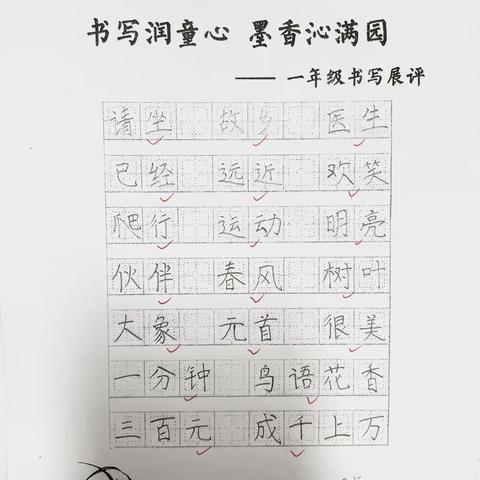 书写润童心 墨香沁满园
—— 一年级书写展评
请坐 故乡 医生
已经 远近 欢笑
爬行 运动 明亮
伙伴 春风 树叶
大象 元首 很美
一分钟 鸟语花香
三百元 成千上万